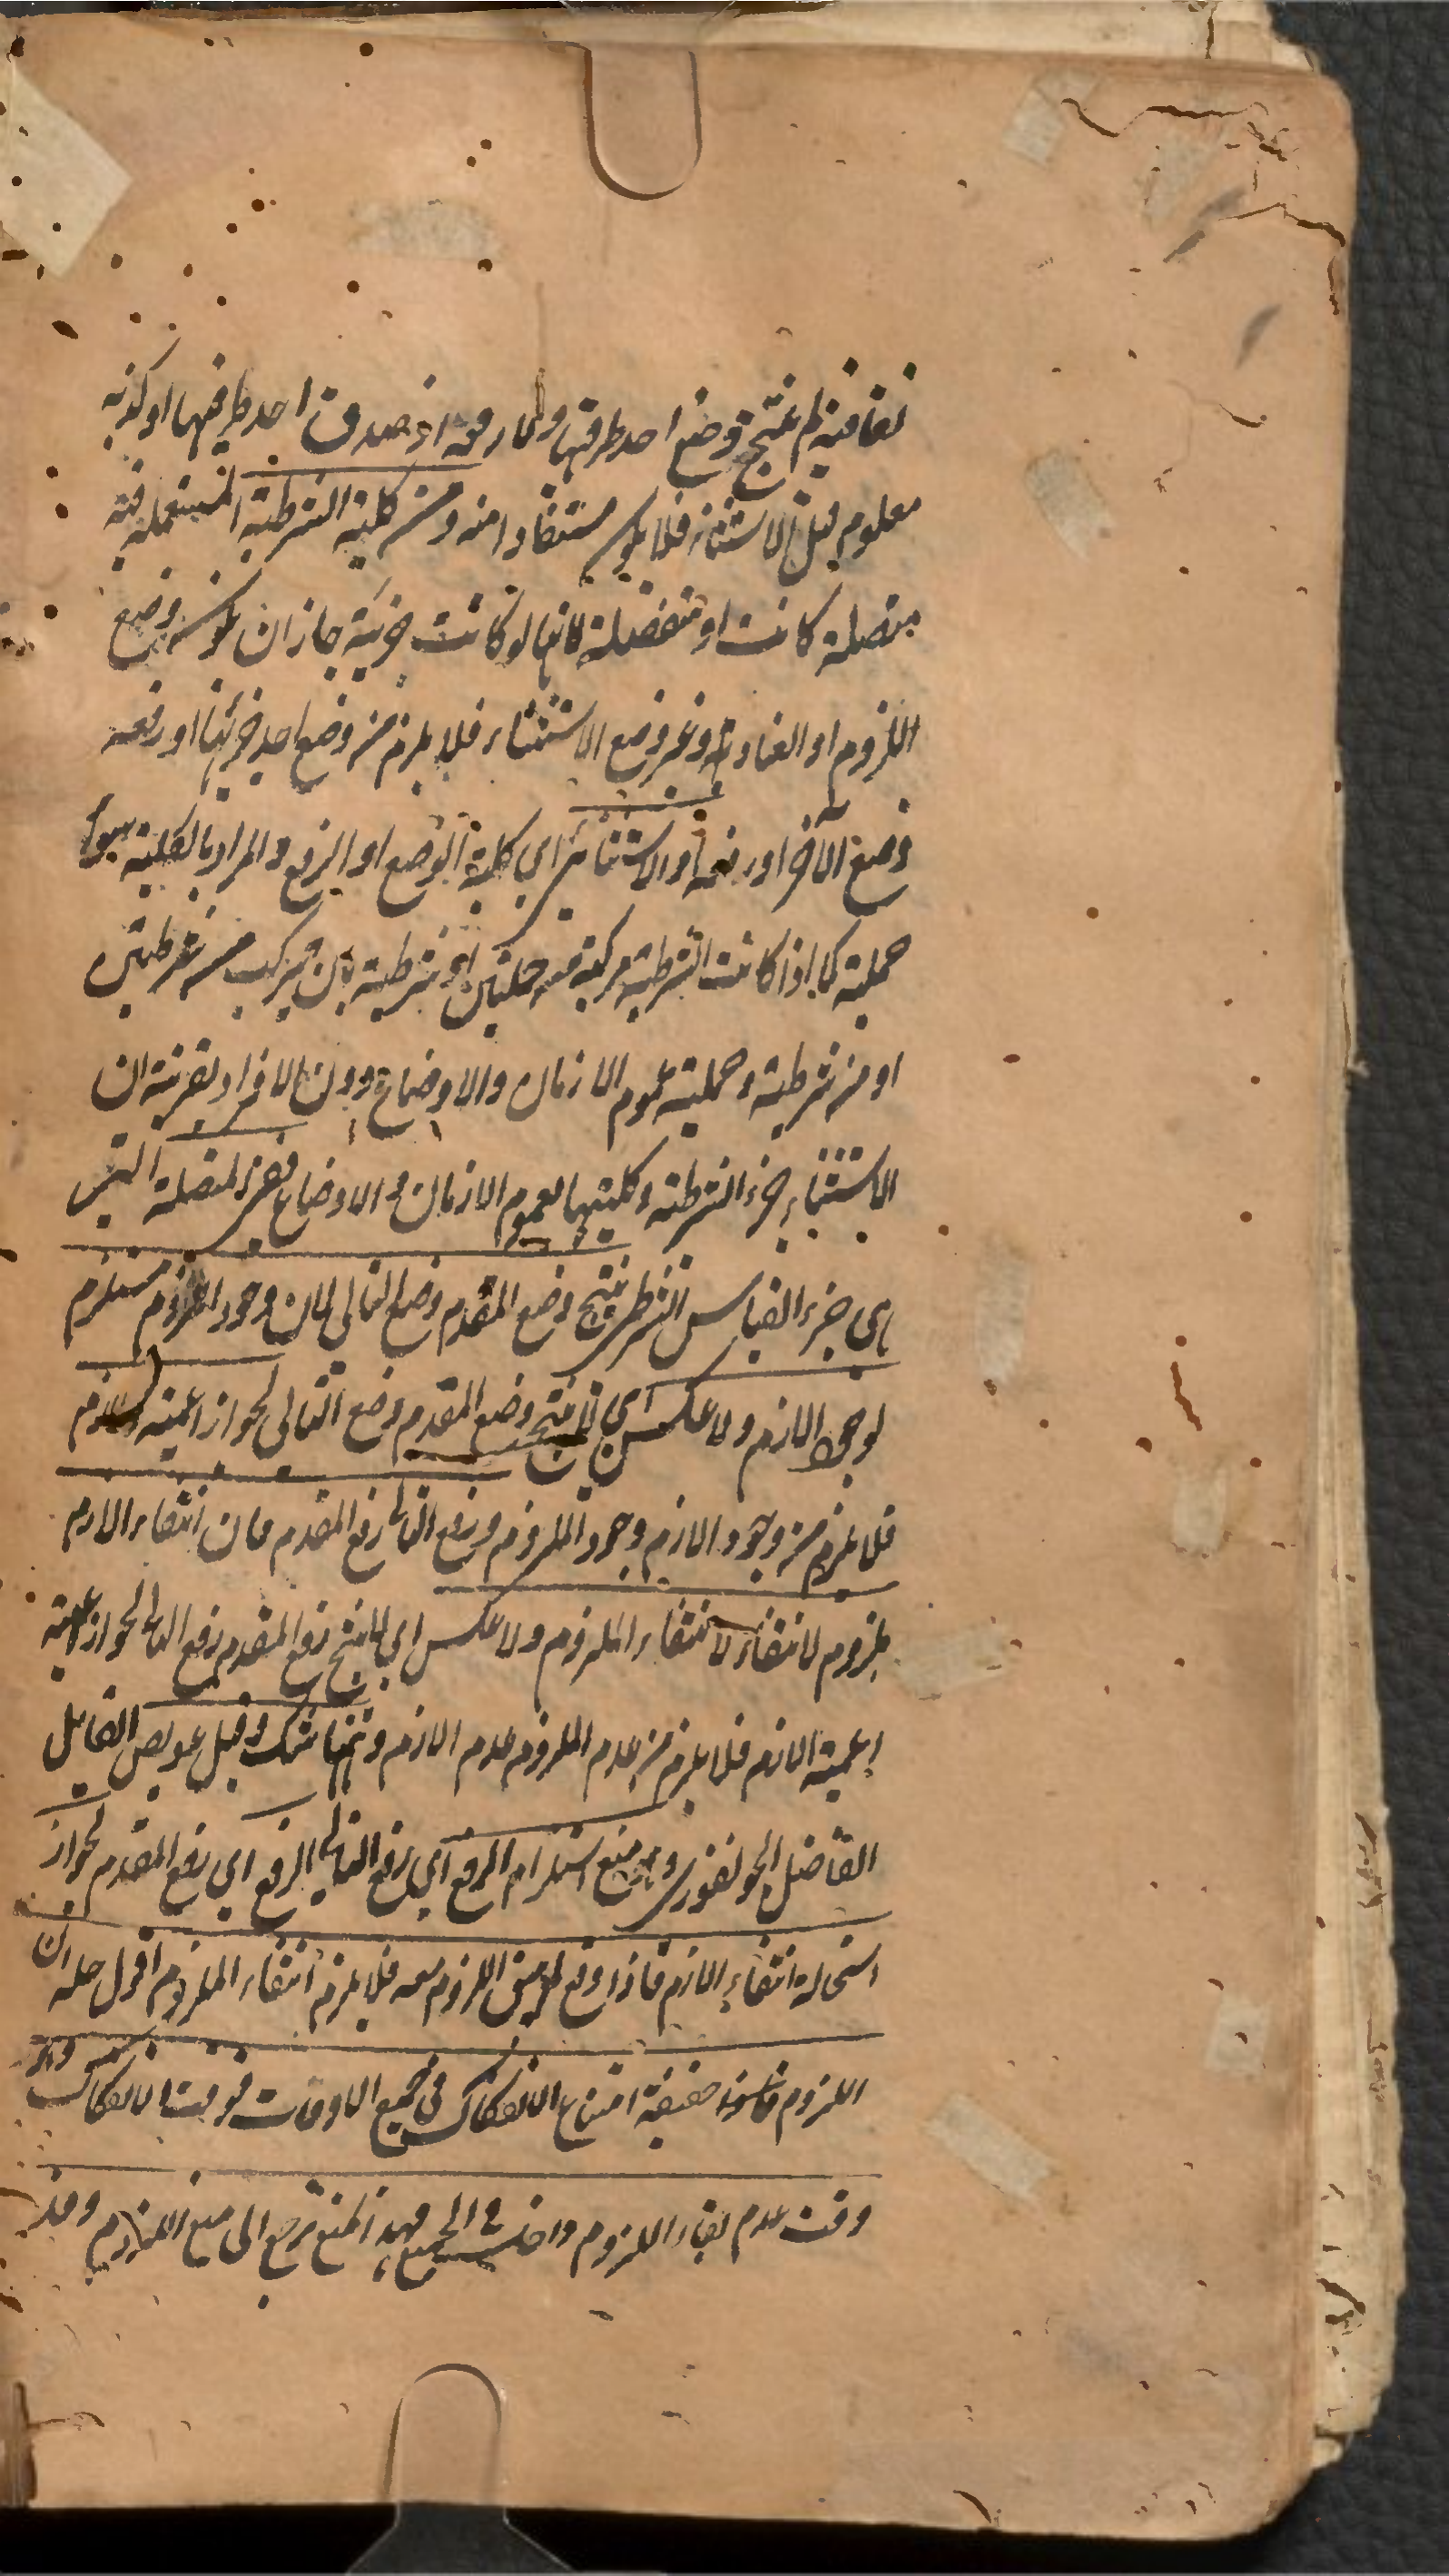 اتفاقية لم ينتج وضع احد طرفيها ولا رفعه اذ صدق احد طرفيها او كذبه
معلوم قبل الاستثناء فلا يكون مستفادا منه ومن كلية الشرطية المستعملة فيه
متصلة كانت او منفصلة لانها لو كانت جزئية جاز ان يكون وضع
اللزوم او العناد غير وضع الاستثناء فلا يلزم من وضع احد جزئيها او رفعه
وضع الآخر او رفعه او الاستثناء اي كلية الوضع او الرفع والمراد بالكلية سواء
حملية كما اذا كانت الشرطية مركبة من حمليتين او شرطية بان يتركب من شرطيتين
او من شرطية وحملية عموم الازمان والاوضاع دون الافراد بقرينة ان
الاستثناء جزء الشرطية وكليتها بعموم الازمان والاوضاع ففي المتصلة التي
هي جزء القياس الشرطي ينتج وضع المقدم وضع التالي لان وجود الملزوم مستلزم
لوجود اللازم ولا عكس اي لا ينتج وضع المقدم وضع التالي لجواز اعمية اللازم
فلا يلزم من وجود اللازم وجود الملزوم ورفع التالي رفع المقدم فان انتفاء اللازم
ملزوم لانتفاء الملزوم ولا عكس اي لا ينتج رفع المقدم رفع التالي لجواز اعمية
اعمية اللازم فلا يلزم من عدم الملزوم عدم اللازم وههنا شك وقيل عويص القائل
الفاضل الجونفوري وهو منع استلزام الرفع اي رفع التالي الرفع اي رفع المقدم لجواز
استحالة انتفاء اللازم فاذا وقع لم يبق اللزوم معه فلا يلزم انتفاء الملزوم اقول حله ان
اللزوم حقيقة امتناع الانفكاك في جميع الاوقات فوقت الانفكاك وهو
وقت عدم بقاء اللزوم داخل في الجميع فهذا المنع يرجع الى منع اللزوم وقد